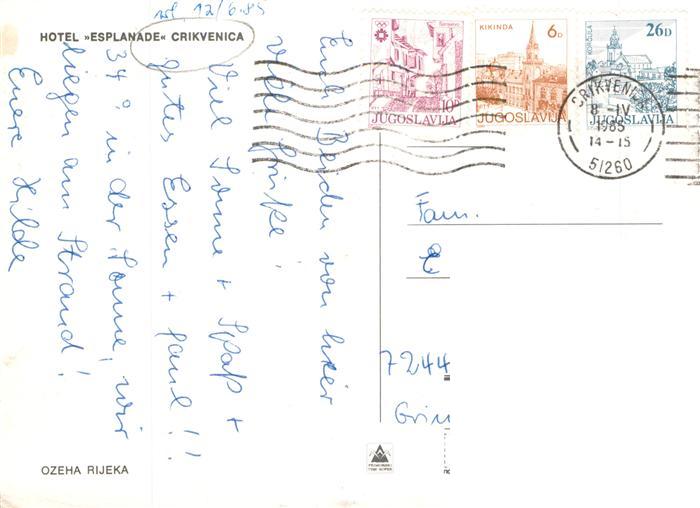 erl 12/6.85
HOTEL »ESPLANADE« CRIKVENICA
Euch Beiden von hier
viele Grüße!
Viel Sonne + Spaß +
gutes Essen + faul!!
34° in der Sonne, wir
liegen am Strand!
Euere Hilde
OZEHA RIJEKA
Sarajevo
10D
JUGOSLAVIJA
KIKINDA
6D
JUGOSLAVIJA
KORČULA
26D
JUGOSLAVIJA
CRIKVENICA
8-IV
1985
14-15
51260
Fam.
7244